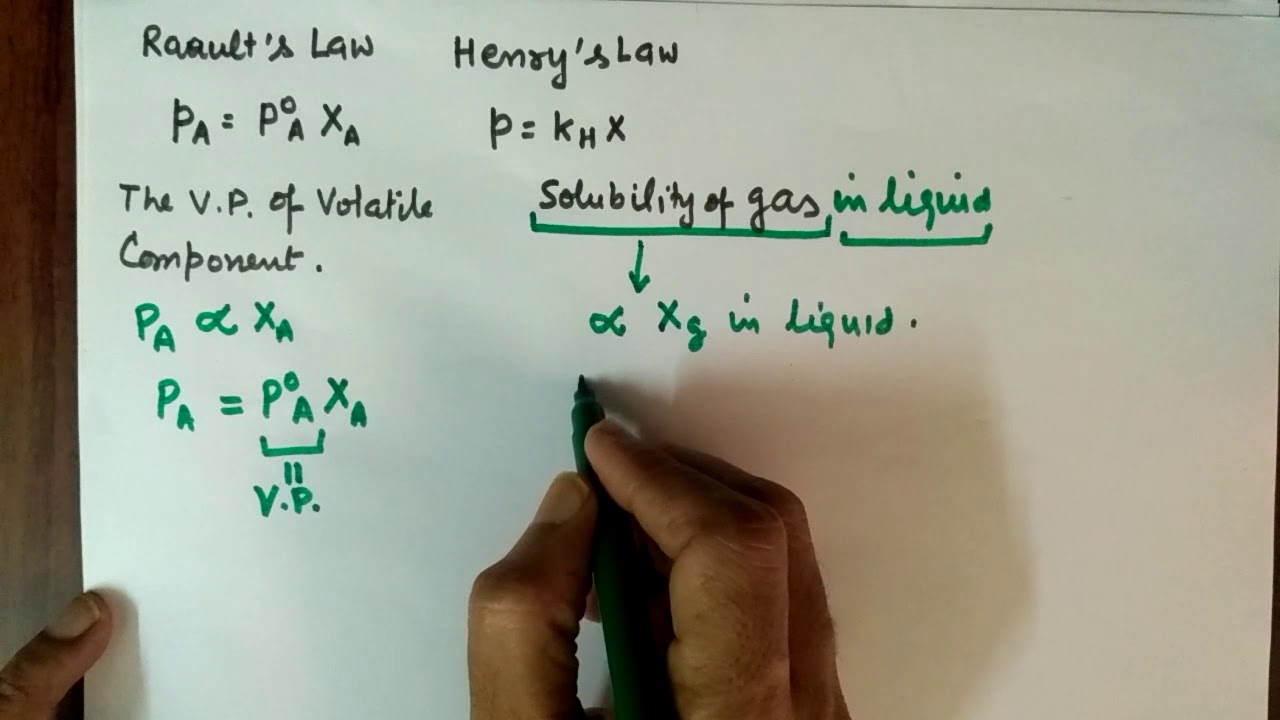 Raault's Law
pA = P⁰A XA
The V.P. of Volatile
Component.
PA ∝ XA
PA = P⁰A XA
||
V.P.
Henry's Law
p = kH X
Solubility of gas in liquid
↓
∝ Xg in liquid.